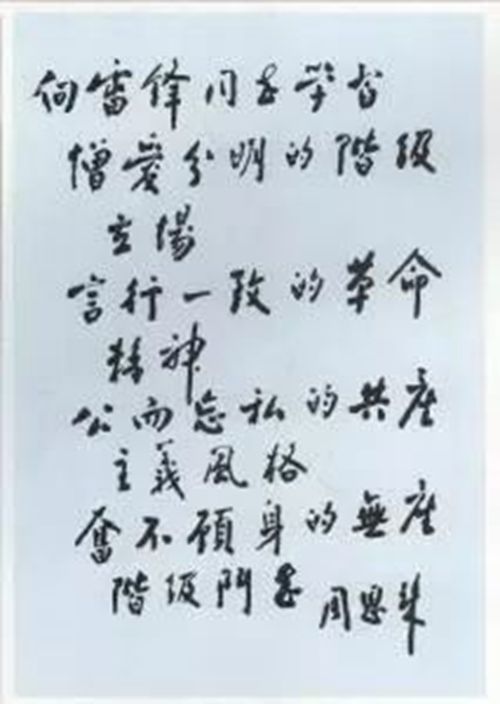 向雷锋同志学习
憎愛分明的階级
立場
言行一致的革命
精神
公而忘私的共産
主義風格
奮不顾身的無産
階级鬥志
周恩来